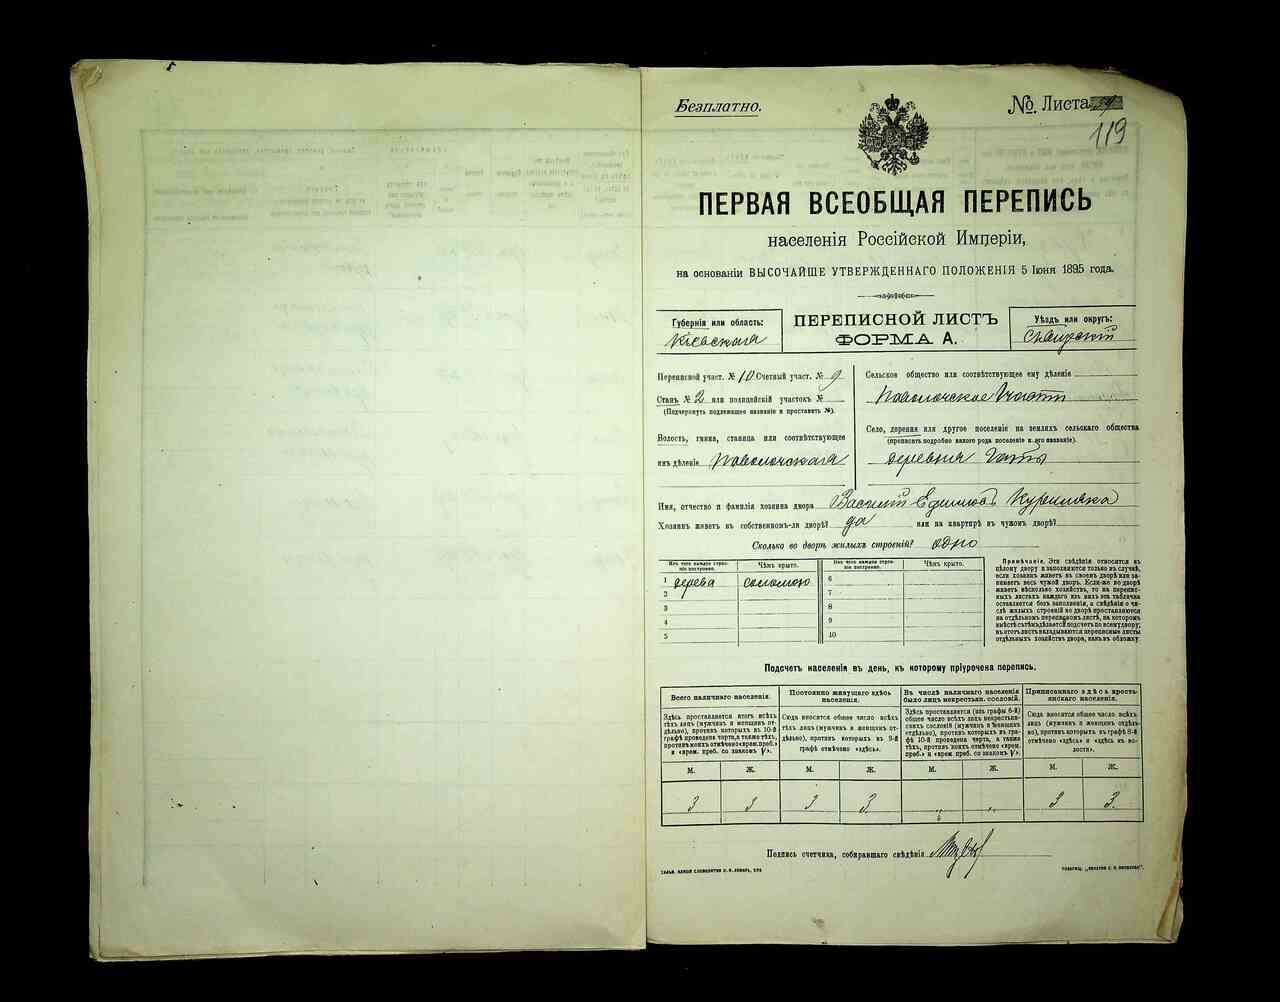 Безплатно.
№ Листа
119
ПЕРВАЯ ВСЕОБЩАЯ ПЕРЕПИСЬ
населенія Россійской Имперіи,
на основаніи ВЫСОЧАЙШЕ УТВЕРЖДЕННАГО ПОЛОЖЕНІЯ 5 Іюня 1895 года.
Губернія или область:
Кіевская
ПЕРЕПИСНОЙ ЛИСТЪ
ФОРМА А.
Уѣздъ или округъ:
Сквирскій
Переписной участ. № 10 Счетный участ. № 9
Станъ № 2 или полицейскій участокъ №
(Подчеркнуть подлежащее названіе и проставить №).
Волость, гмина, станица или соотвѣтствующее
имъ дѣленіе Паволочская
Сельское общество или соотвѣтствующее ему дѣленіе
Паволочское
Село, деревня или другое поселеніе на земляхъ сельскаго общества
(прописать подробно какого рода поселеніе и его названіе).
деревня
Имя, отчество и фамилія хозяина двора Василій
Хозяинъ живетъ въ собственномъ-ли дворѣ? да или на квартирѣ въ чужомъ дворѣ?
Сколько во дворѣ жилыхъ строеній? одно
Изъ чего каждое строеніе построено.
Чѣмъ крыто.
Изъ чего каждое строеніе построено.
Чѣмъ крыто.
1 дерева соломою 6
2 7
3 8
4 9
5 10
Примѣчаніе. Эти свѣдѣнія относятся къ
цѣлому двору и заполняются только въ случаѣ,
если хозяинъ живетъ въ своемъ дворѣ или занимаетъ весь чужой дворъ. Если-же во дворѣ
живетъ нѣсколько хозяйствъ, то на переписныхъ листахъ каждаго изъ нихъ эта табличка
оставляется безъ заполненія, а свѣдѣнія о числѣ жилыхъ строеній во дворѣ проставляются
на отдѣльномъ переписномъ листѣ, на которомъ
вмѣстѣ съ тѣмъ дѣлается подсчетъ по всему двору;
въ этотъ листъ вкладываются переписные листы
отдѣльныхъ хозяйствъ двора, какъ въ обложку.
Подсчетъ населенія въ день, къ которому пріурочена перепись.
Всего наличнаго населенія.
Здѣсь проставляется итогъ всѣхъ
тѣхъ лицъ (мужчинъ и женщинъ отдѣльно), противъ которыхъ въ 10-й
графѣ проведена черта, а также тѣхъ,
противъ коихъ отмѣчено «врем. преб.»
и «врем. преб. со знакомъ V».
Постоянно живущаго здѣсь
населенія.
Сюда вносится общее число всѣхъ
тѣхъ лицъ (мужчинъ и женщинъ отдѣльно), противъ которыхъ въ 9-й
графѣ отмѣчено «здѣсь».
Въ числѣ наличнаго населенія
было лицъ некрестьян. сословій.
Здѣсь проставляется (изъ графы 6-й)
общее число всѣхъ лицъ некрестьянскихъ сословій (мужчинъ и женщинъ
отдѣльно), противъ которыхъ въ графѣ 10-й проведена черта, а также
тѣхъ, противъ коихъ отмѣчено «врем.
преб.» и «врем. преб. со знакомъ V».
Приписаннаго здѣсь крестьянскаго населенія.
Сюда вносится общее число всѣхъ
лицъ (мужчинъ и женщинъ отдѣльно), противъ которыхъ въ графѣ 8-й
отмѣчено «здѣсь» и «здѣсь въ волости».
М. Ж. М. Ж. М. Ж. М. Ж.
3 3 3 3 „ „ 3 3
Подпись счетчика, собиравшаго свѣдѣнія